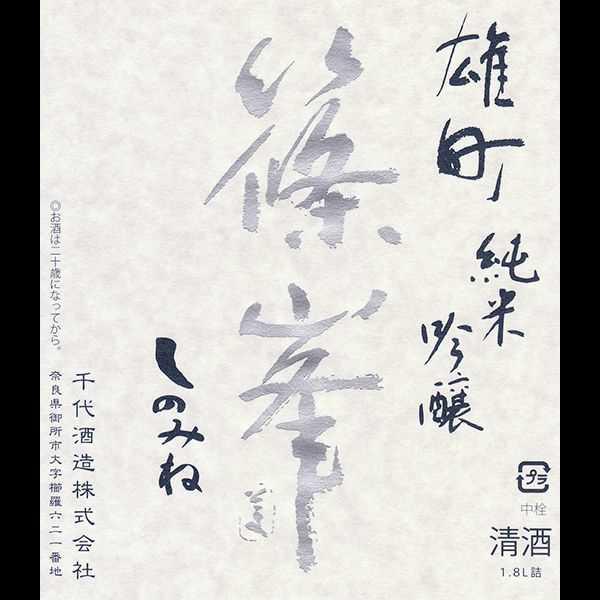 雄町
純米
吟醸
篠峯
しのみね
千代酒造株式会社
奈良県御所市大字櫛羅六二一番地
◎お酒は二十歳になってから。
プラ
中栓
清酒
1.8L詰